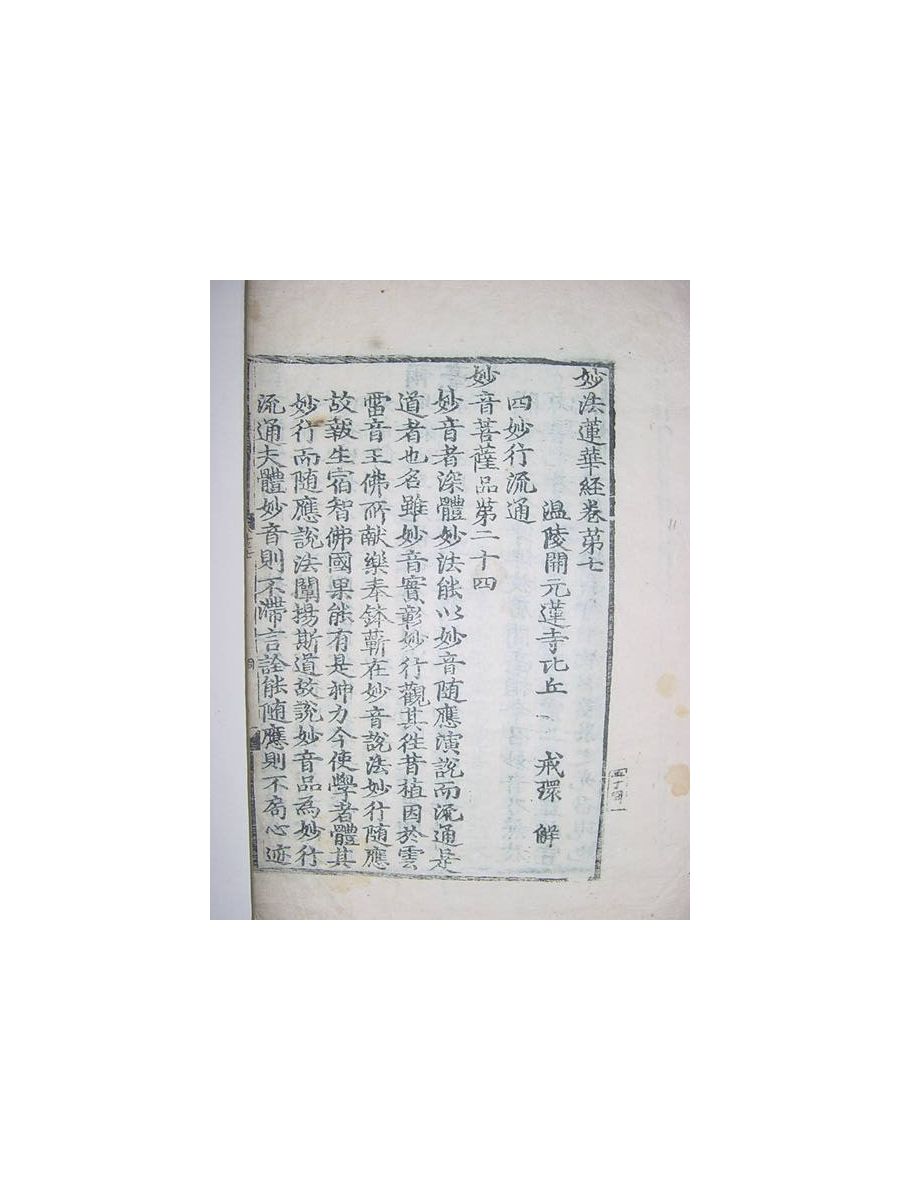 妙法蓮華経巻第七
温陵開元蓮寺比丘 戒環 解
四妙行流通
妙音菩薩品第二十四
妙音者深體妙法能以妙音随應演說而流通是
道者也名雖妙音實彰妙行觀其徃昔植因於雲
雷音王佛所献樂奉鉢蘄在妙音說法妙行随應
故報生宿智佛國果能有是神力今使學者體其
妙行而随應說法闡揚斯道故說妙音品為妙行
流通夫體妙音則不滯言詮能随應則不局心迹